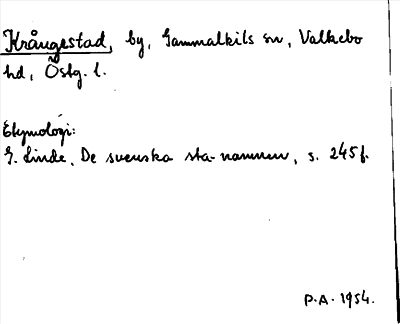 Krångestad, by, Gammalkils sn, Valkebo
hd, Östg. l.
Etymologi:
G. Linde, De svenska sta-namnen, s. 245 f.
P.A. 1954.